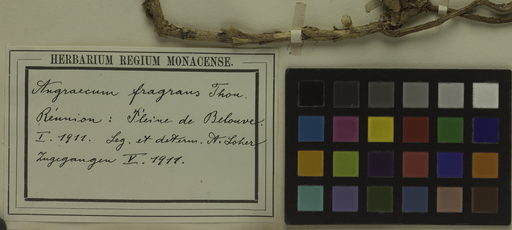 HERBARIUM REGIUM MONACENSE.
Angraecum fragrans Thou.
Réunion: Pleine de Belouve.
I. 1911. Leg. et determ. A. Loher
Zugegangen V. 1911.